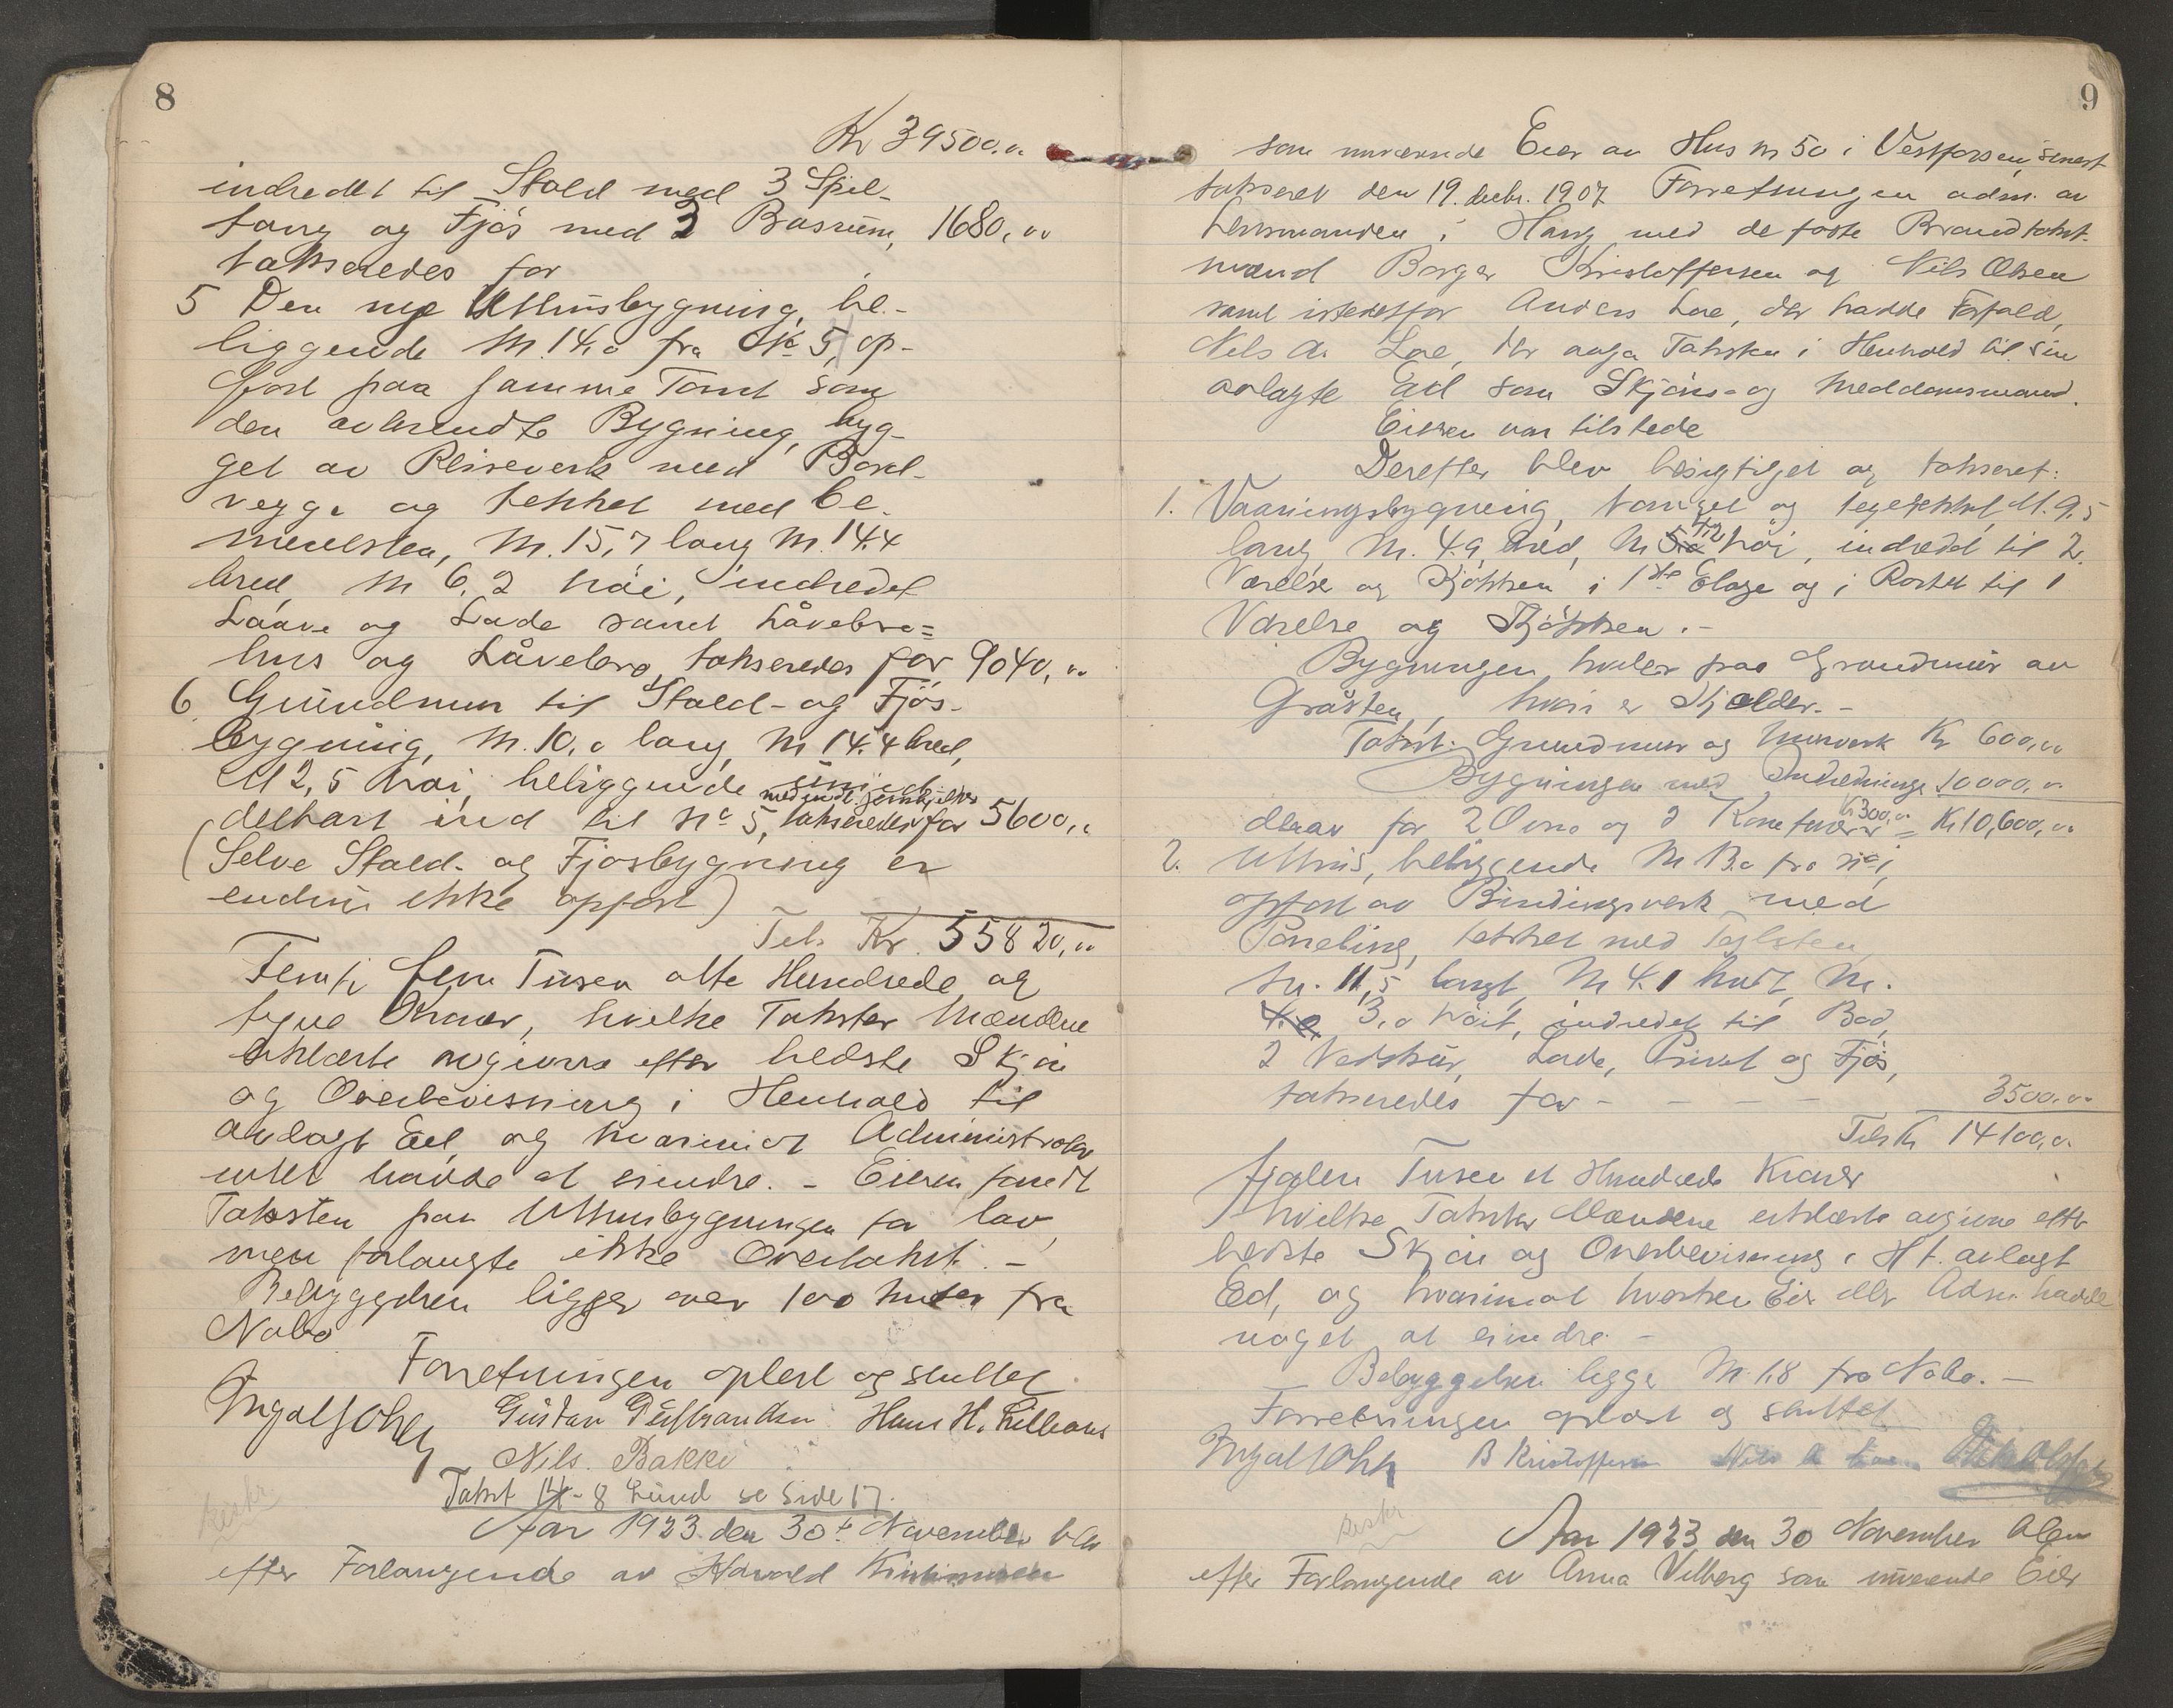 8
Kr 39500,00
indredet til Stald med 3 Spil-
taug og Fjøs med 3 Basrum, 1680,00
takseredes for
5 Den nye Uthusbygning, be-
liggende M. 14,0 fra Nr 5, op-
ført paa samme Tomt som
den avbrendte Bygning, byg-
get av Reisverk med Bord-
vegge og tekket med Ce-
mentsten, M. 15,7 lang M. 14,4
bred, M 6,2 høi, indredet
Laave og Lade samt Låvebro=
hus og Låvebro takseredes for 9040,00
6. Grundmur til Stald- og Fjøs-
bygning, M. 10,0 lang, M 14,4 bred,
M 2,5 høi, beliggende umid
delbart ind til No 5, takseredes for 5600,00
(Selve Stald- og Fjøsbygning er
endnu ikke opført)
Tils. Kr. 55820,00
Femti fem Tusen otte Hundrede og
tyve Kroner, hvilke Takster Mændene
erklærte avgivne efter bedste Skjøn
og Overbevisning i Henhold til
avlagt Ed, og hvorimot Administrator
intet hadde at erindre. - Eieren fandt
Taksten paa Uthusbygningen for lav,
men forlangte ikke Overtakst. -
Bebyggelsen ligger over 100 Meter fra
Nabo
Forretningen oplest og sluttet
Gustav Gulbrandsen Hans H.
Nils Bakke
Takst 14 - 8 Lund se Side 17.
Aar 1923 den 30te November blev
efter Forlangende av Harald Kristiansen
9
som nuværende Eier av Hus nr 50 i Vestfossen, senest
takseret den 19. decbr. 1907 Forretningen adm. av
Lensmanden i Haug med de faste Brandtakst-
mænd Borger Kristoffersen og Nils Olsen
samt istedetfor Anders Loe, der hadde Forfald,
Nils A. Loe, der avga Taksten i Henhold til sin
avlagte Ed som Skjøns- og Meddomsmand.
Eieren var tilstede
Derefter blev besigtiget og takseret:
1. Vaaningsbygning, tømret og tegltekket M. 9,5
lang, M. 4,9 bred, M 4,2 høi, indredet til 2
Værelse og Kjøkken i 1ste Etage og i Rostet til 1
Værelse og Kjøkken. -
Bygningen hviler paa Grundmur av
Gråsten, hvori er Kjelder. -
Takst: Grundmur og Murverk Kr 600,00
Bygningen med Indredninge 10000,00
derav for 2 Ovne og 2 Komfurer Kr 300,00 = Kr 10,600,00
2. Uthus, beliggende M 13,0 fra No 1,
opført av Bindingsverk med
Paneling, tekket med Teglsten
M. 11,5 langt, M 4,1 bredt, M.
3,0 høit, indredet til Bod,
2 Vedskur, Lade, Privet og Fjøs,
takseredes for - - - - 3500,00
Tils Kr 14100,00
fjorten Tusen et Hundrede Kroner
hvilke Takster Mændene erklærte avgivne efter
bedste Skjøn og Overbevisning i H. t. avlagt
Ed, og hvorimot hverken Eier eller Adm. hadde
noget at erindre. -
Bebyggelsen ligger M. 18 fra Nabo. -
Forretningen oplæst og sluttet
B Kristoffersen Nils A Loe Nils Olsen
Aar 1923 den 30 November blev
efter Forlangende av Anna Velberg som nuværende Eier